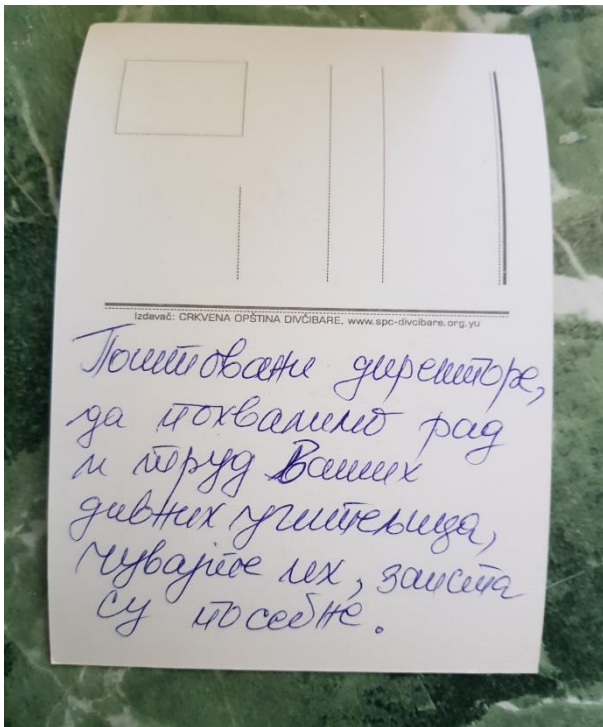 Izdavač: CRKVENA OPŠTINA DIVČIBARE, www.spc-divcibare.org.yu
Поштовани директоре,
да похвалимо рад
и труд Ваших
дивних учитељица,
чувајте их, заиста
су посебне.